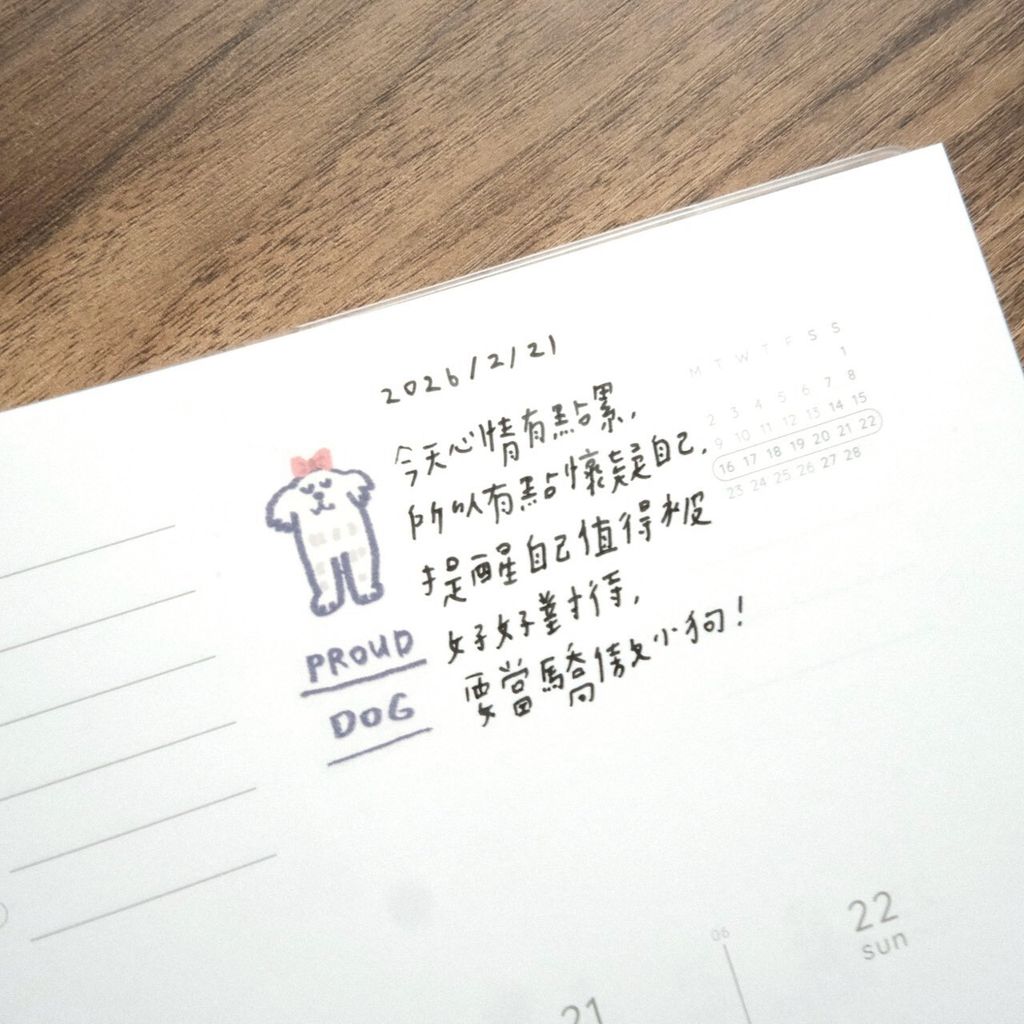 2026/2/21
今天心情有點累,
所以有點懷疑自己,
提醒自己值得被
好好對待,
要當驕傲小狗!
PROUD
DOG
M T W T F S S
1
2 3 4 5 6 7 8
9 10 11 12 13 14 15
16 17 18 19 20 21 22
23 24 25 26 27 28
06
21
22
sun